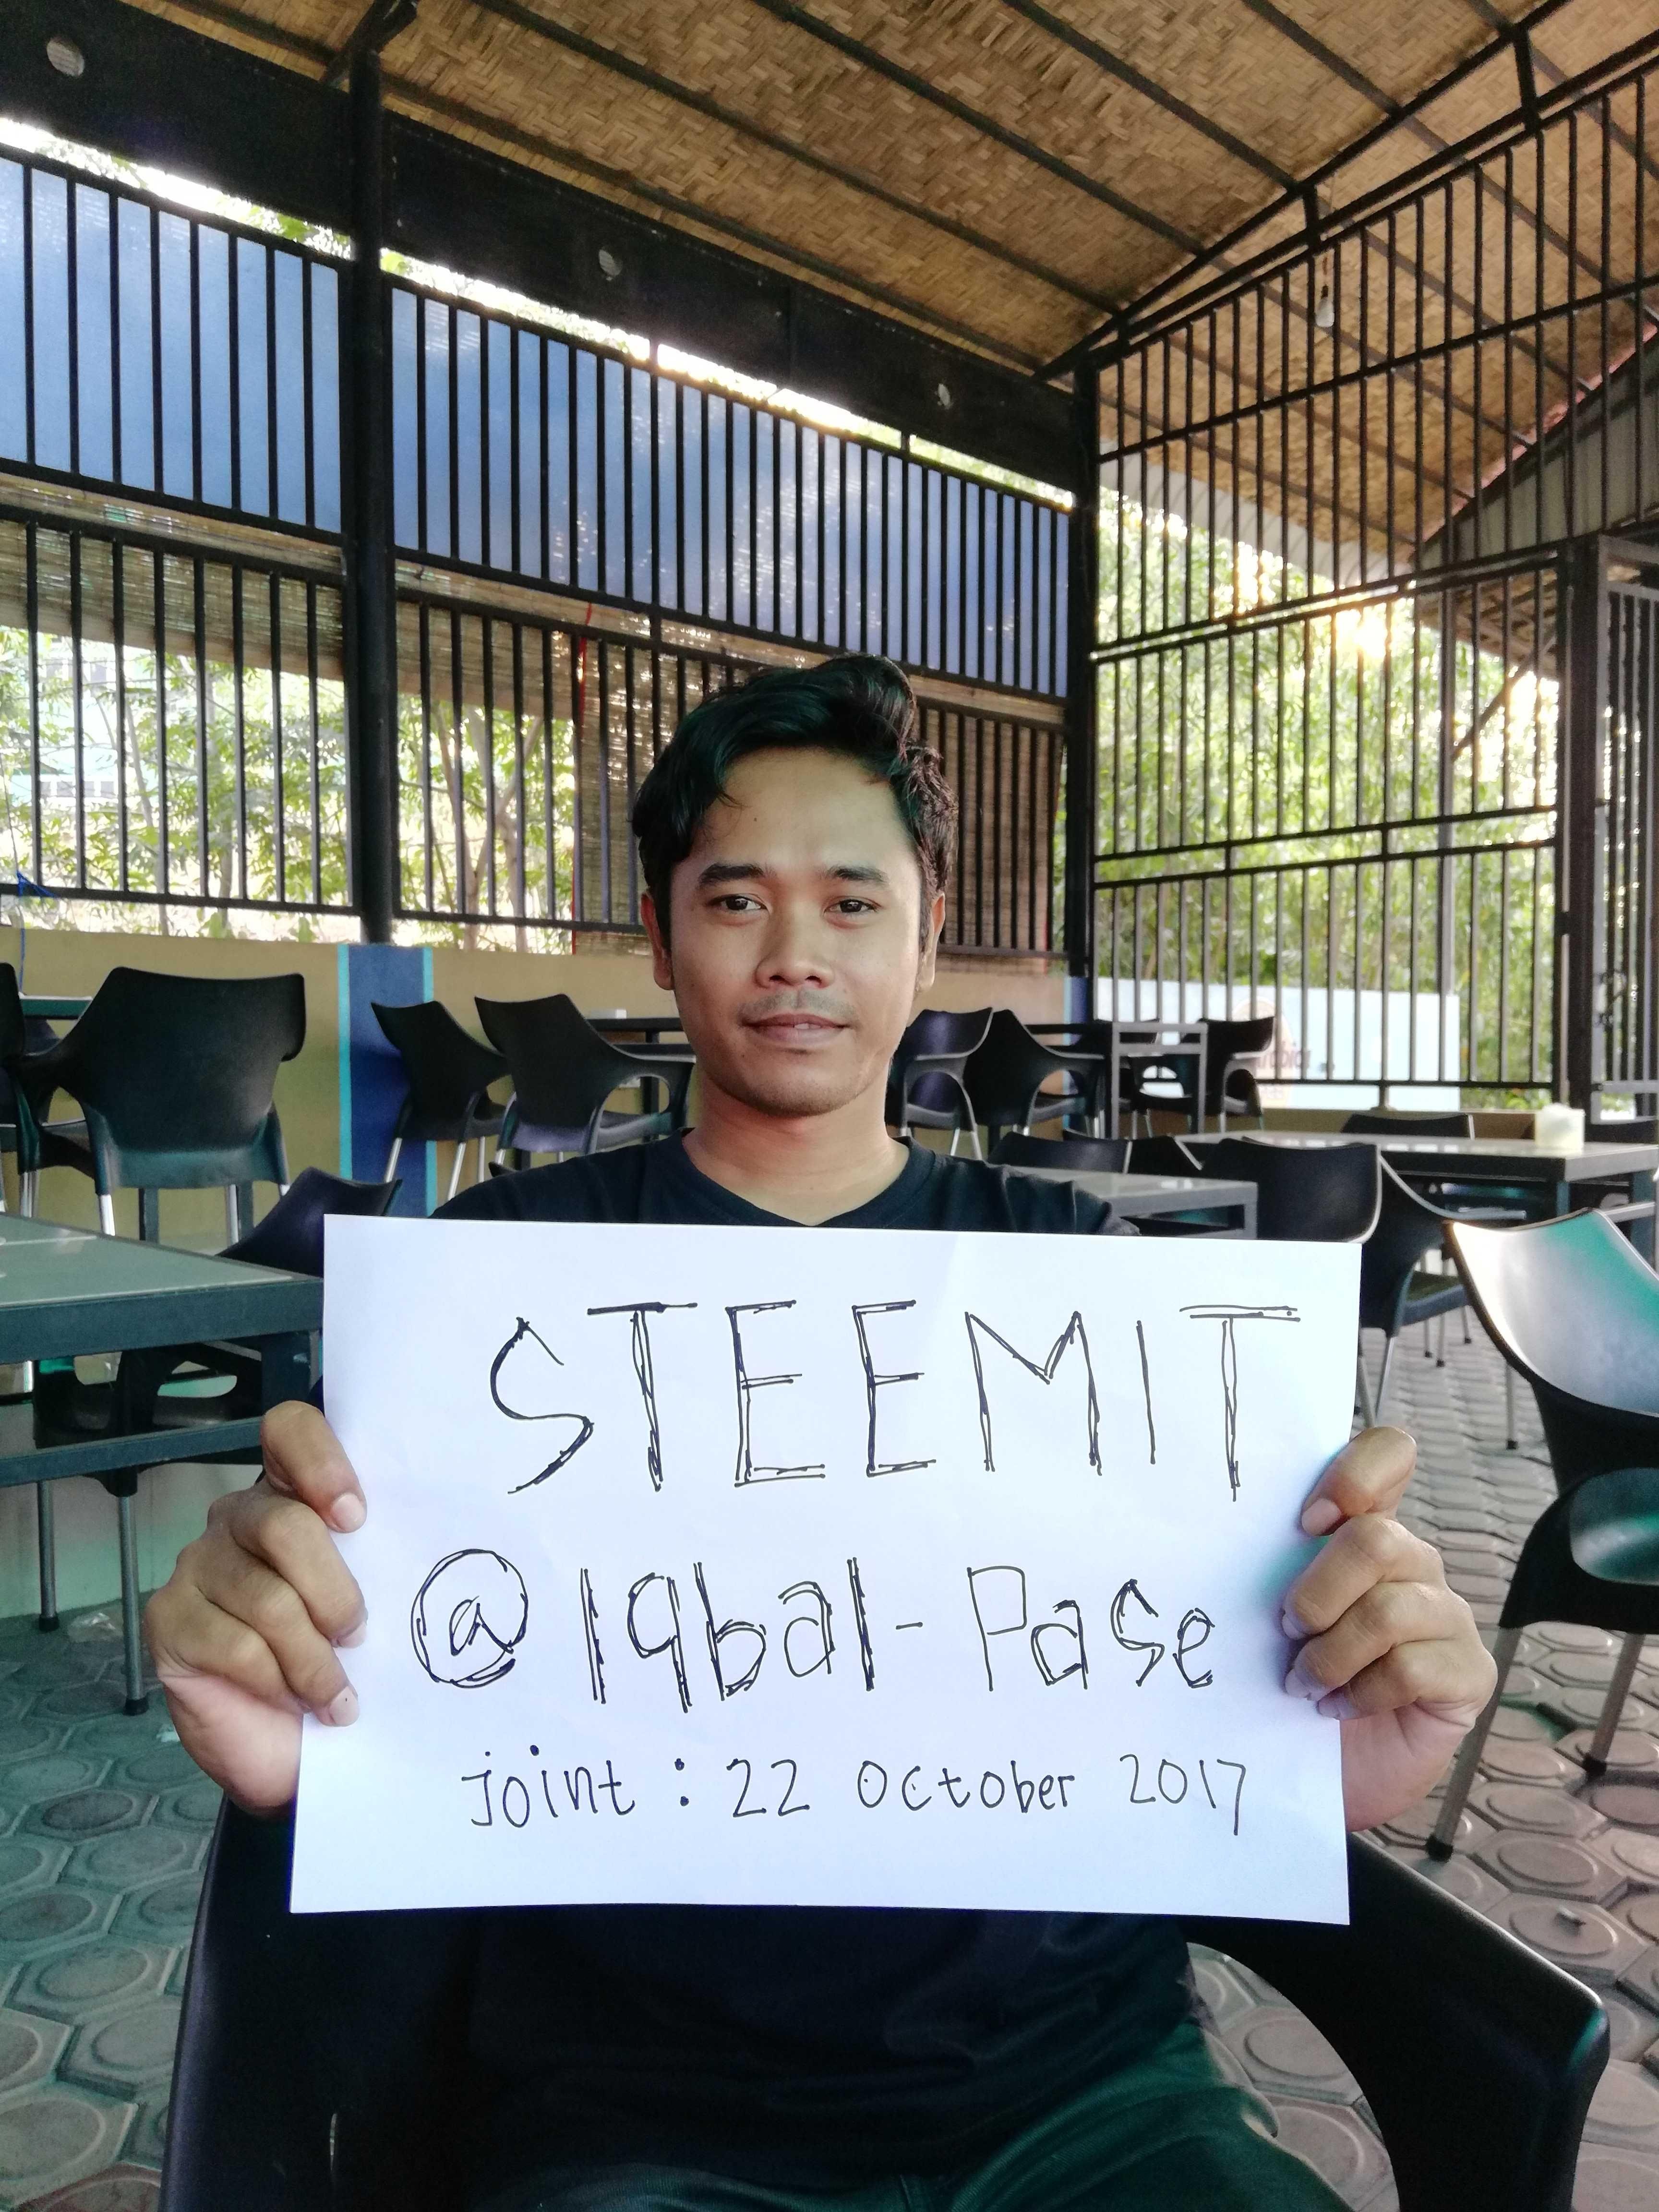 STEEMIT
@Iqbal-Pase
joint : 22 October 2017